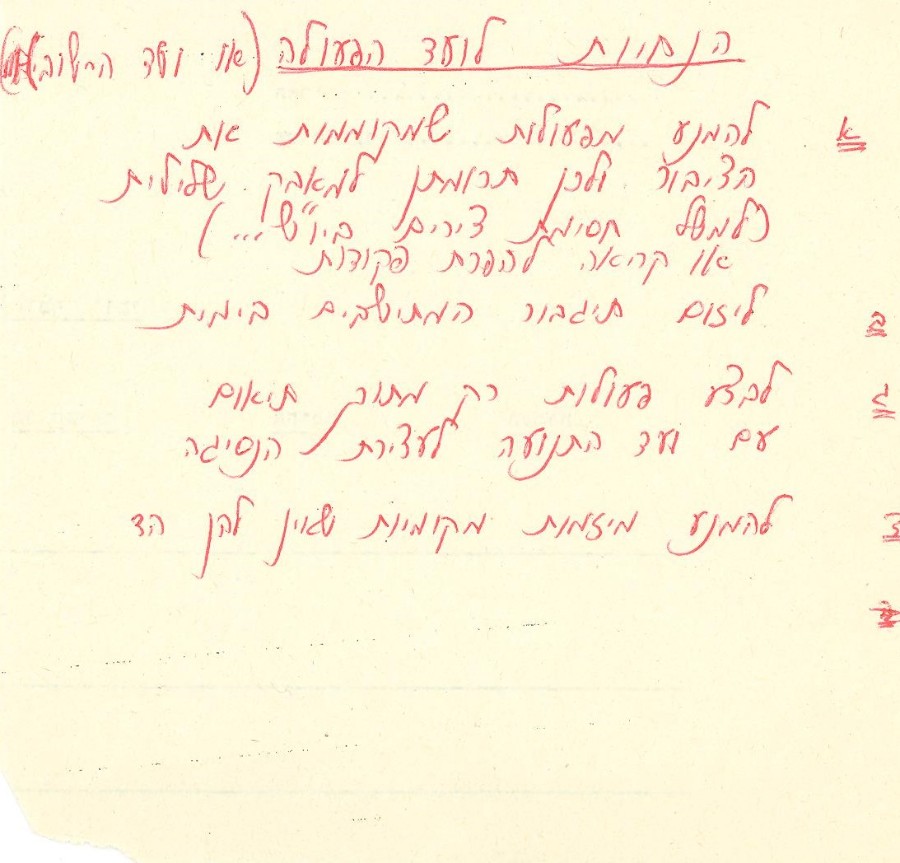 הנחיות לועד הפעולה (או ועד הישובים)
א להמנע מפעולות שמקוממות את
הציבור ולכן תרומתן למאבק שלילית
(למשל חסימת צירים ביו"ש...)
או קריאה להפרת פקודות
ב ליזום תיגבור המתישבים בימית
ג לבצע פעולות רק מתוך תיאום
עם ועד התנועה לעצירת הנסיגה
ד להמנע מיזמות מקומיות שאין להן הד